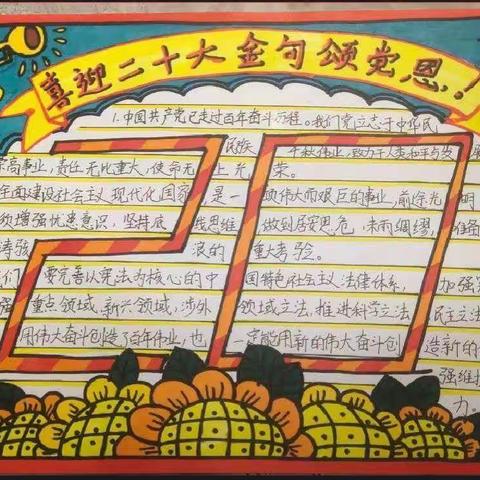 喜迎二十大金句颂党恩!
1.中国共产党已走过百年奋斗历程。我们党立志于中华民
民族 千秋伟业,致力于人类和平与发
崇高事业,责任无比重大,使命无上光荣。
全面建设社会主义现代化国家 是一 项伟大而艰巨的事业,前途光明
须增强忧患意识,坚持底线思维 做到居安思危,未雨绸缪,准备
涛骇 浪的 重大考验。
们 要完善以宪法为核心的中 国特色社会主义法律体系, 加强
强重点领域、新兴领域、涉外 领域立法,推进科学立法 民主立法
用伟大奋斗创造了百年伟业,也 一定能用新的伟大奋斗创 造新的
强维
力。